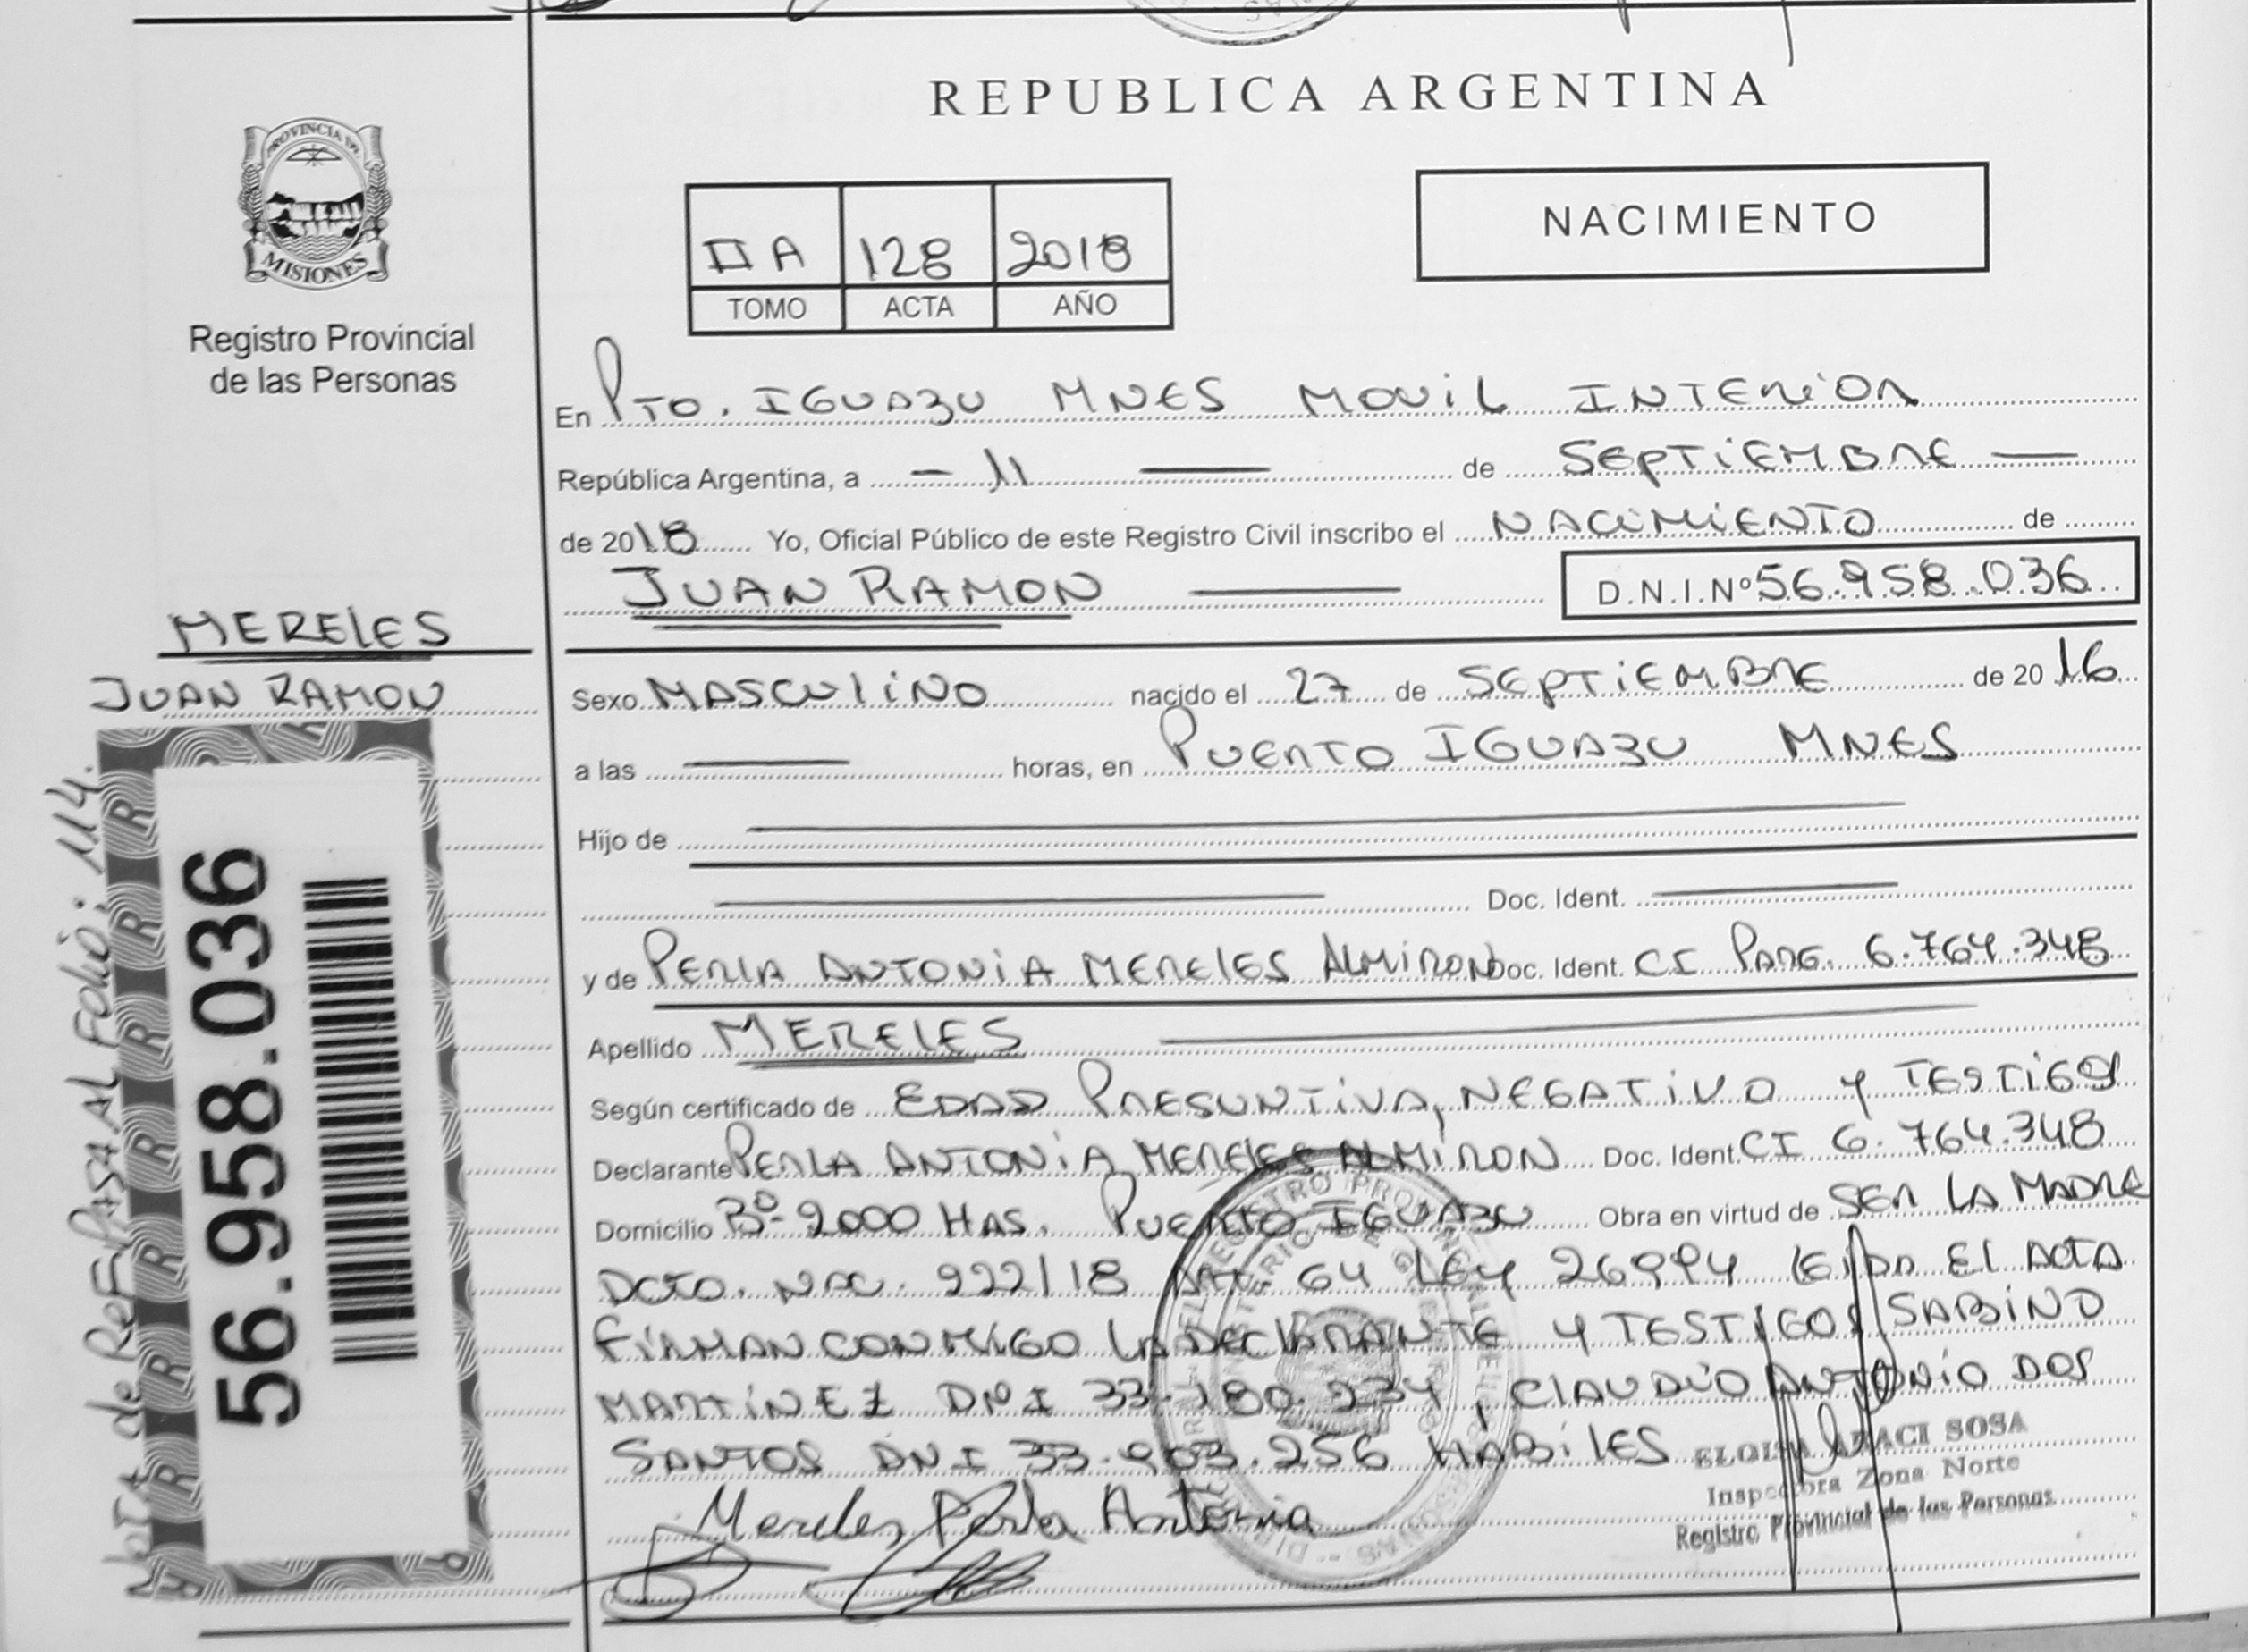 REPUBLICA ARGENTINA
PROVINCIA DE
MISIONES
Registro Provincial
de las Personas
II A 128 2018
TOMO ACTA AÑO
NACIMIENTO
En Pto. IGUAZU MNES MOVIL INTERIOR
República Argentina, a 11 de SEPTIEMBRE
de 2018 Yo, Oficial Público de este Registro Civil inscribo el NACIMIENTO de
JUAN RAMON D.N.I.Nº 56.958.036
MERELES
JUAN RAMON
Sexo MASCULINO nacido el 27 de SEPTIEMBRE de 2016
a las horas, en PUERTO IGUAZU MNES
Hijo de
Doc. Ident.
y de PERLA ANTONIA MERELES ALMIRON Doc. Ident. CI PARG. 6.764.348
Apellido MERELES
Según certificado de EDAD PRESUNTIVA, NEGATIVO Y TESTIGOS
Declarante PERLA ANTONIA MERELES ALMIRON Doc. Ident. CI 6.764.348
Domicilio Bº 2000 HAS. PUERTO IGUAZU Obra en virtud de SER LA MADRE
DCTO. NAC. 922/18 Art. 64 LEY 26994 LEIDA EL ACTA
FIRMAN CONMIGO LA DECLARANTE Y TESTIGOS SABINO
MARTINEZ DNI 33.180.234, CLAUDIO ANTONIO DOS
SANTOS DNI 33.903.256 HABILES
Mereles Perla Antonia
ELOISA ARACI SOSA
Inspectora Zona Norte
Registro Provincial de las Personas
56.958.036
Nota de Ref. Pasa AL Folio: 114.